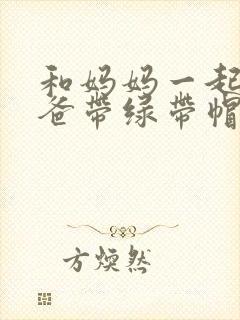 和妈妈一起
爸带绿带帽
方焕然